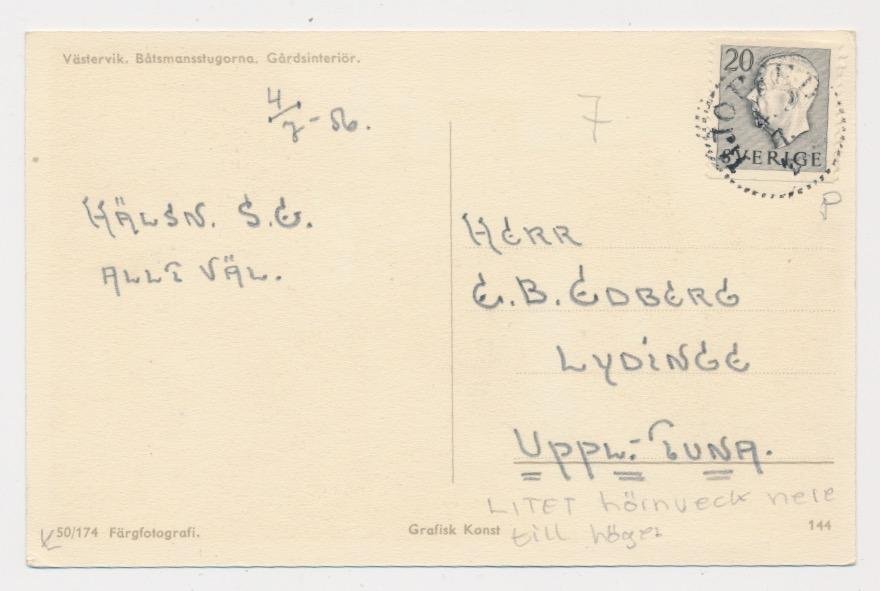 Västervik. Båtsmansstugorna. Gårdsinteriör.
4/7-56.
7
20
SVERIGE
P
HÄLSN. S.E.
ALLT VÄL.
HERR
E.B. EDBERG
LYDINGE
UPPL.-TUNA.
LITET hörnveck nere
till höger
50/174 Färgfotografi.
Grafisk Konst
144